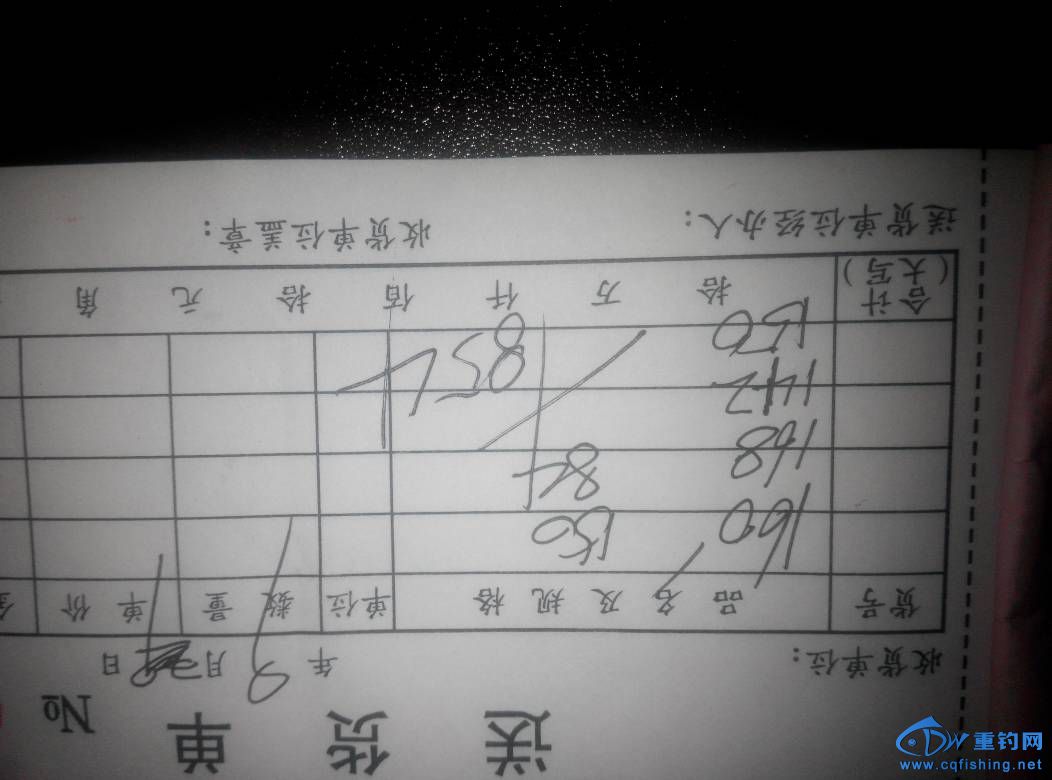 送 货 单 №
收货单位： 年 月 日
货号 品 名 及 规 格 单位 数 量 单 价
160 150
168 84
142
150 854
合计（大写） 拾 万 仟 佰 拾 元 角
送货单位经办人： 收货单位盖章：
重钓网
www.cqfishing.net